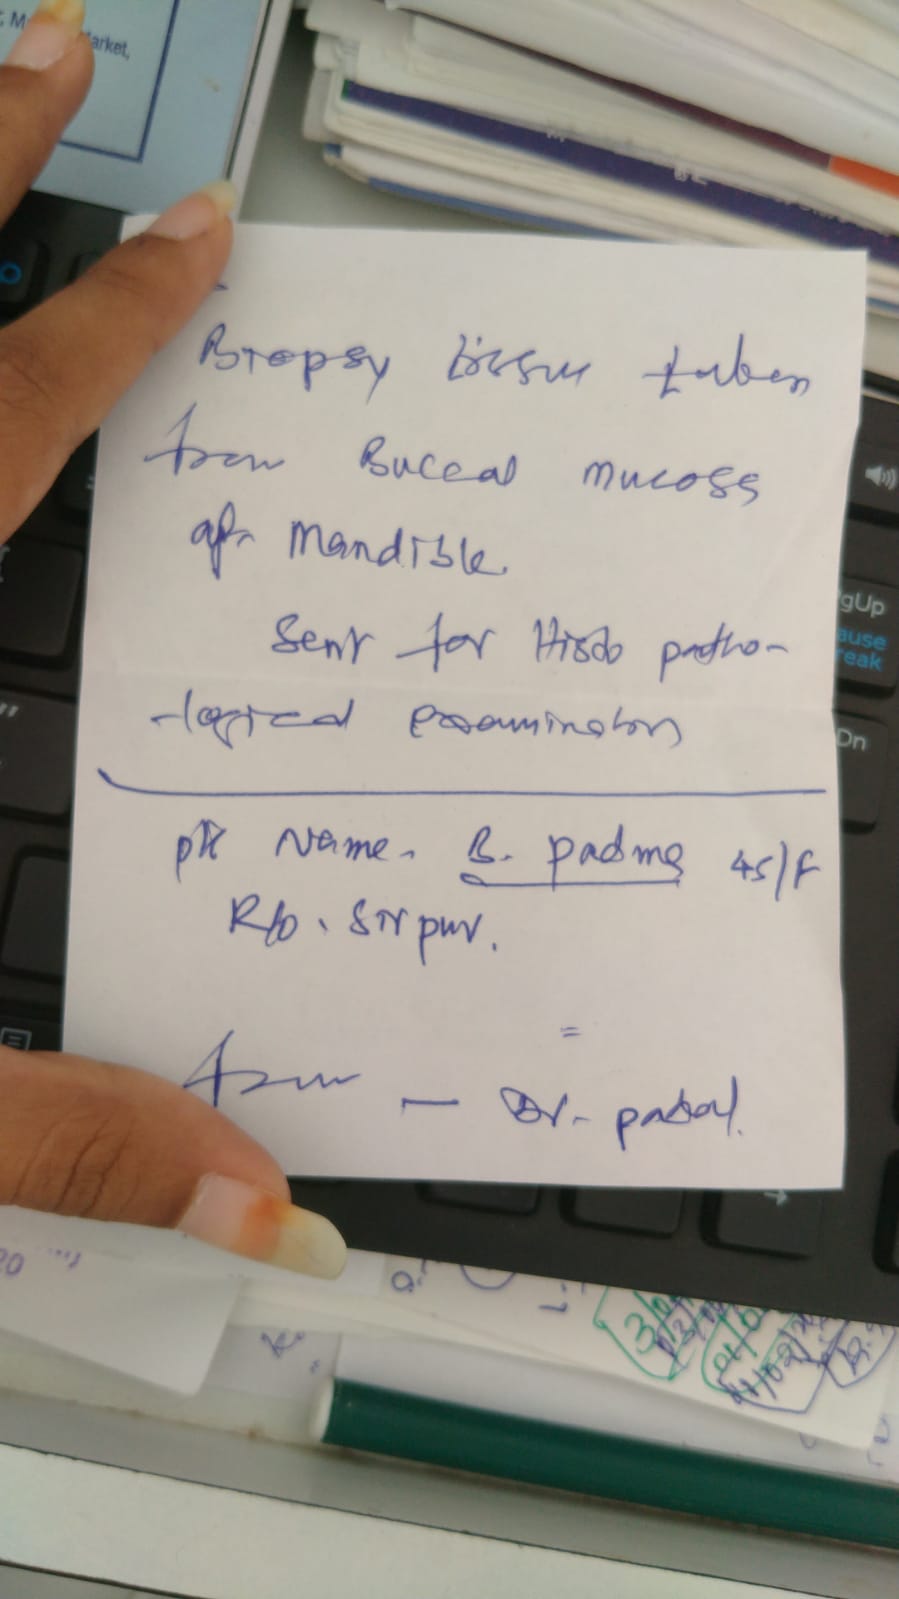 arket,
Biopsy tissue taken
from Buccal mucosa
of Mandible.
Sent for Histo patho-
-logical examination
pt Name. B. padma 45/F
R/o. Sirpur.
=
from - Dr. patal.
gUp
ause
reak
Dn